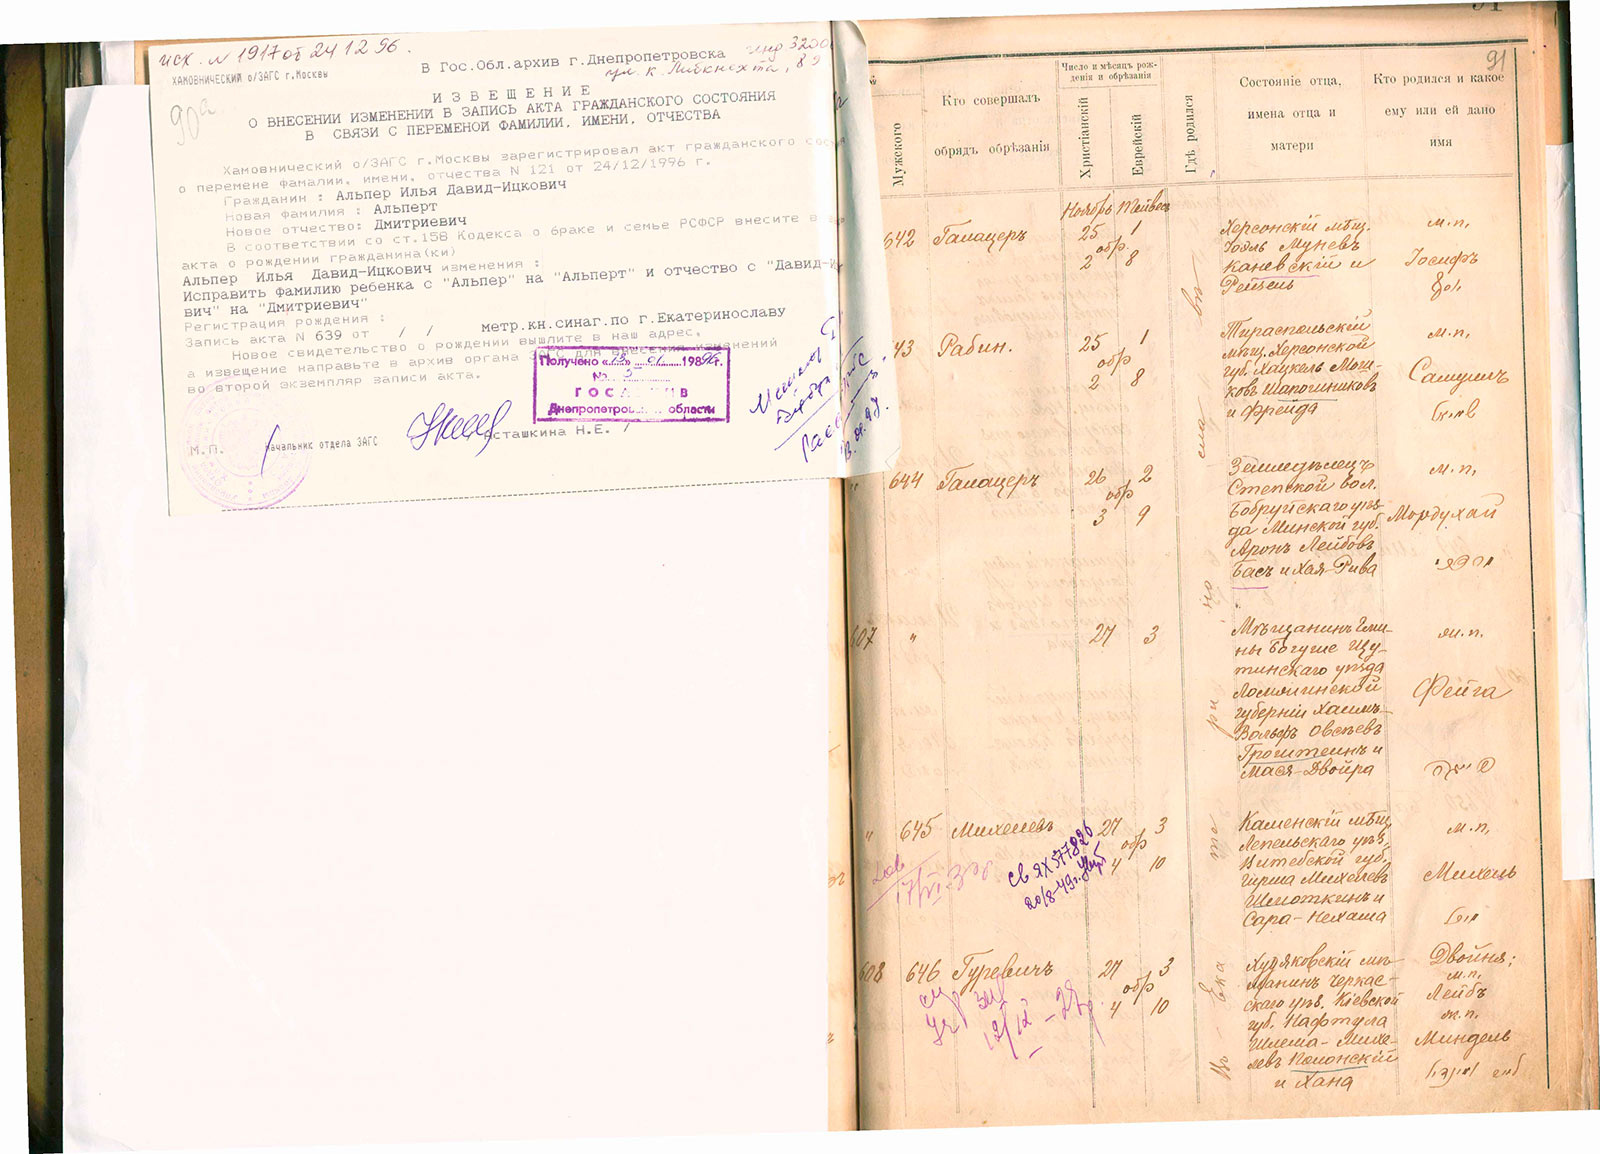 исх. N 1917 от 24 12 96.
ХАМОВНИЧЕСКИЙ о/ЗАГС г.Москвы
В Гос.Обл.архив г.Днепропетровска
инд 3200
ул. К. Либкнехта, 89
90а
И З В Е Щ Е Н И Е
О ВНЕСЕНИИ ИЗМЕНЕНИЙ В ЗАПИСЬ АКТА ГРАЖДАНСКОГО СОСТОЯНИЯ
В СВЯЗИ С ПЕРЕМЕНОЙ ФАМИЛИИ, ИМЕНИ, ОТЧЕСТВА
Хамовнический о/ЗАГС г.Москвы зарегистрировал акт гражданского состоя
о перемене фамалии, имени, отчества N 121 от 24/12/1996 г.
Гражданин : Альпер Илья Давид-Ицкович
Новая фамилия : Альперт
Новое отчество: Дмитриевич
В соответствии со ст.158 Кодекса о браке и семье РСФСР внесите в
акта о рождении гражданина(ки)
Альпер Илья Давид-Ицкович изменения :
Исправить фамилию ребенка с "Альпер" на "Альперт" и отчество с "Давид-И
вич" на "Дмитриевич"
Регистрация рождения :
Запись акта N 639 от / / метр.кн.синаг.по г.Екатеринославу
Новое свидетельство о рождении вышлите в наш адрес,
а извещение направьте в архив органа ЗАГС для внесения изменений
во второй экземпляр записи акта.
Получено «13» 01 1996г.
№ 3
ГОСАРХИВ
Днепропетровской области
М.П.
Начальник отдела ЗАГС
Асташкина Н.Е.
91
Мужского
Кто совершалъ
обрядъ обрѣзанія
Число и мѣсяцъ рож-
денія и обрѣзанія
Христіанскій
Еврейскій
Гдѣ родился
Состояніе отца,
имена отца и
матери
Кто родился и какое
ему или ей дано
имя
Ноябрь Тейвесъ
642 Галацеръ 25 1
обр.
2 8
Херсонскій мѣщ.
Іоэль Муневъ
Каневскій и
Рейзель
м.п,
Іосифъ
43 Рабин. 25 1
обр
2 8
Тираспольскій
мѣщ. Херсонской
губ. Хацкель Мош-
ковъ Шапошниковъ
и Фрейда
м.п,
Самуилъ
" 644 Галацеръ 26 2
обр
3 9
Земледѣлецъ
Степской вол.
Бобруйскаго уѣз-
да Минской губ.
Аронъ Лейбовъ
Басъ и Хая-Рива
м.п,
Мордухай
607 " 27 3
Мѣщанинъ Гми-
ны Богуше Щу-
тинскаго уѣзда
Ломжинской
губерніи Хаимъ-
Вольфъ Овсѣевъ
Гроштейнъ и
Мася-Двойра
ж.п.
Фейга
" 645 Михелевъ 27 3
обр
4 10
св ЯХ 577826
20/8-49г.
Каменскій мѣщ,
Лепельскаго уѣз,
Витебской губ.
Гирша Михелевъ
Шмоткинъ и
Сара-Нехаша
м.п,
Михель
608 646 Гуревичъ 27 3
обр
4 10
Худяковскій мѣ-
щанинъ Черкас-
скаго уѣз. Кіевской
губ. Нафтула
Шлема-Михе-
левъ Полонскій
и Хана
Двойня:
м.п.
Лейбъ
ж.п.
Миндель
Въ - Ека те ри но сла вѣ